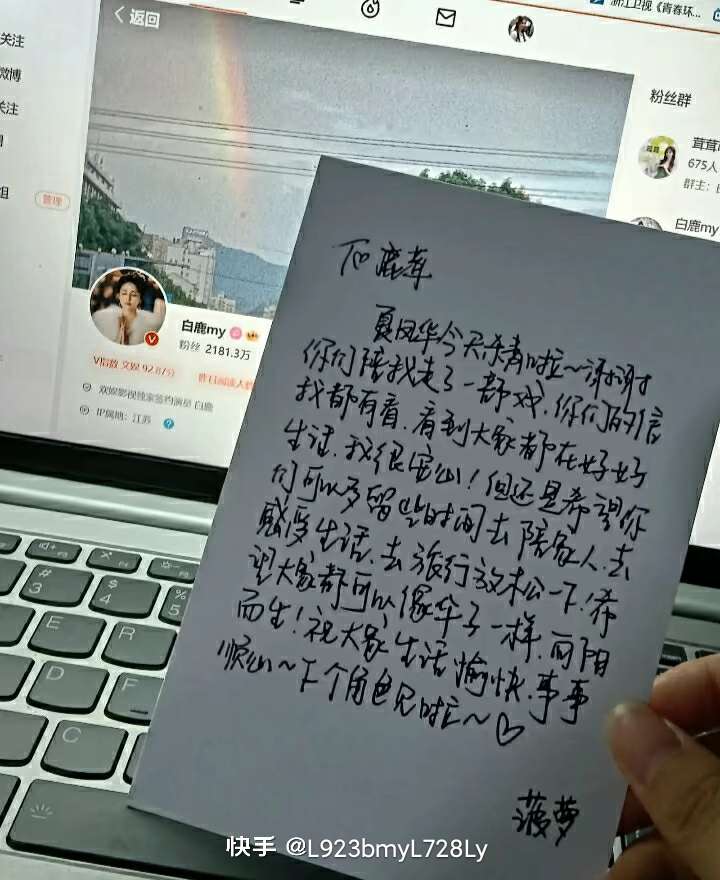 浙江卫视《青春环...
返回
关注
微博
关注
组
管理
粉丝群
茸茸
675人
群主：
白鹿my
白鹿my
粉丝 2181.3万
V指数 文娱 92.87分
昨日阅读人数
欢娱影视独家签约演员 白鹿
IP属地：江苏
To 鹿茸
夏凤华今天杀青啦～谢谢
你们陪我走了一部戏，你们的信
我都有看，看到大家都在好好
生活，我很安心！但还是希望你
们可以多留些时间去陪家人，去
感受生活，去旅行放松一下！希
望大家都可以像伞子一样，向阳
而生！祝大家生活愉快，事事
顺心～下个角色见啦～♡
菠萝
F5
F6
F7
#
3
$
4
%
5
E
R
D
F
快手 @L923bmyL728Ly